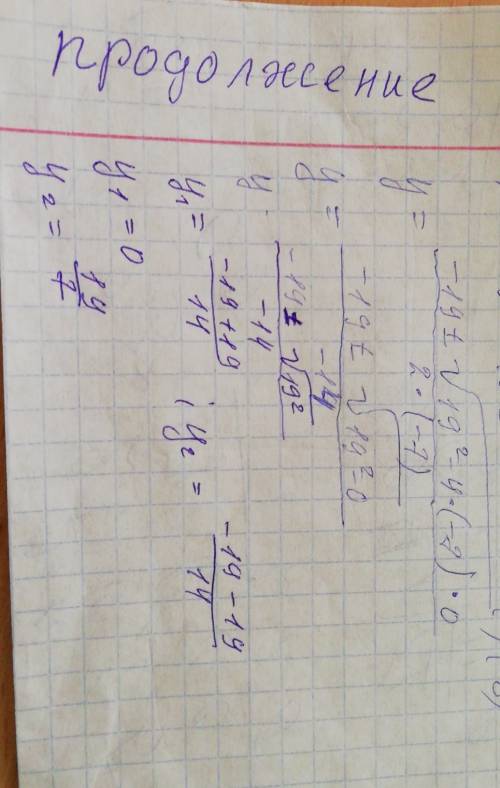 продолжение
y = (-19 ± √(19² - 4·(-7)·0)) / (2·(-7))
y = (-19 ± √(19² - 0)) / (-14)
y = (-19 ± √(19²)) / (-14)
y₁ = (-19 + 19) / 14 ; y₂ = (-19 - 19) / 14
y₁ = 0
y₂ = 19/7